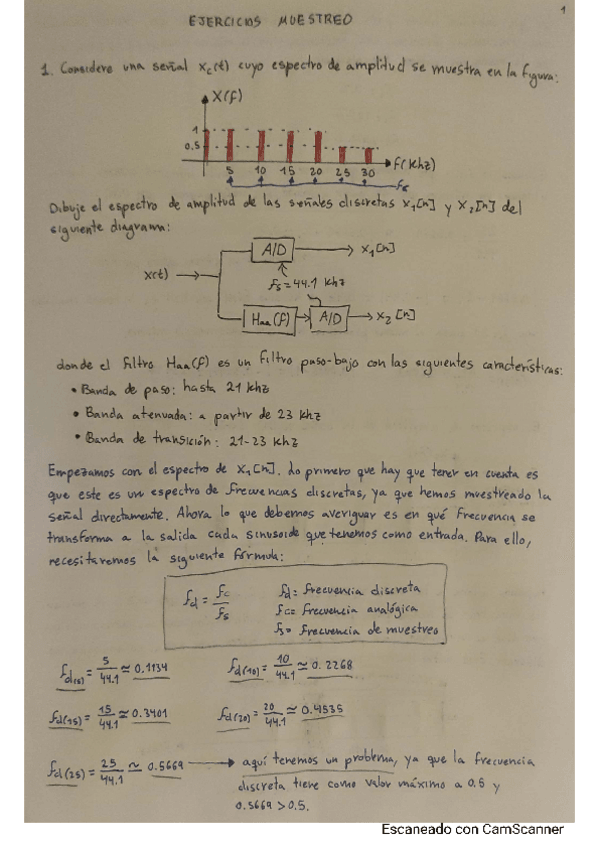 1
EJERCICIOS MUESTREO
1. Considere una señal xc(t) cuyo espectro de amplitud se muestra en la figura:
X(f)
1
0.5
5 10 15 20 25 30 f(Khz)
fc
Dibuje el espectro de amplitud de las señales discretas x1[n] y x2[n] del
siguiente diagrama:
A/D x1[n]
x(t) fs=44.1 Khz
Haa(f) A/D x2[n]
donde el filtro Haa(f) es un filtro paso-bajo con las siguientes características:
• Banda de paso: hasta 21 Khz
• Banda atenuada: a partir de 23 Khz
• Banda de transición: 21-23 Khz
Empezamos con el espectro de x1[n]. Lo primero que hay que tener en cuenta es
que este es un espectro de frecuencias discretas, ya que hemos muestreado la
señal directamente. Ahora lo que debemos averiguar es en qué frecuencia se
transforma a la salida cada sinusoide que tenemos como entrada. Para ello,
necesitaremos la siguiente fórmula:
fd = fc/fs
fd= frecuencia discreta
fc= frecuencia analógica
fs= frecuencia de muestreo
fd(5) = 5/44.1 ≃ 0.1134 fd(10) = 10/44.1 ≃ 0.2268
fd(15) = 15/44.1 ≃ 0.3401 fd(20) = 20/44.1 ≃ 0.4535
fd(25) = 25/44.1 ≃ 0.5669 → aquí tenemos un problema, ya que la frecuencia
discreta tiene como valor máximo a 0.5 y
0.5669 > 0.5.
Escaneado con CamScanner